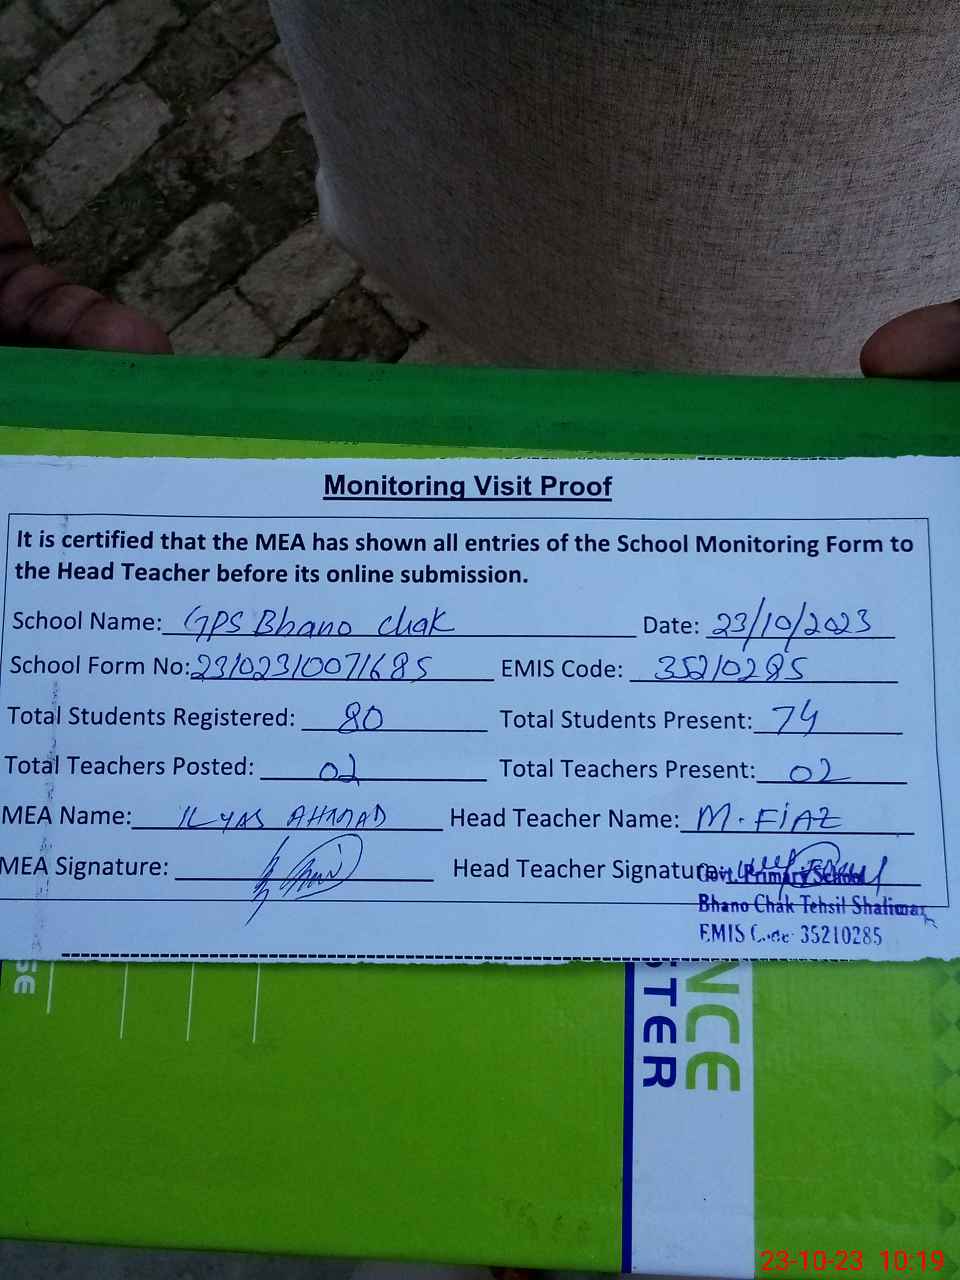 Monitoring Visit Proof
It is certified that the MEA has shown all entries of the School Monitoring Form to
the Head Teacher before its online submission.
School Name: GPS Bhano Chak Date: 23/10/2023
School Form No: 23102310071685 EMIS Code: 35210285
Total Students Registered: 80 Total Students Present: 74
Total Teachers Posted: 02 Total Teachers Present: 02
MEA Name: ILYAS AHMAD Head Teacher Name: M. FiAZ
MEA Signature: Head Teacher Signature:
Govt. Primary School
Bhano Chak Tehsil Shalimar
EMIS Code 35210285
SE
NCE
TER
23-10-23 10:19